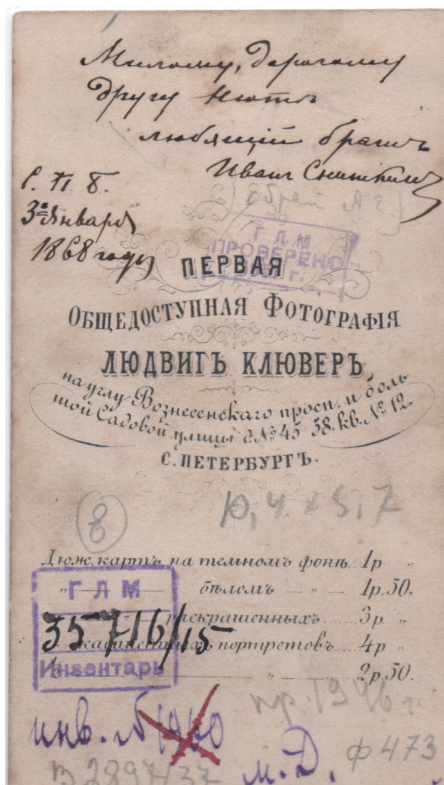 Милому, дорогому
другу Нюте
любящій братъ
Иванъ Сниткинъ
С. П. Б.
3го Января
1868 года
(брат А Г)
ГЛМ
ПРОВЕРЕНО
г.
ПЕРВАЯ
ОБЩЕДОСТУПНАЯ ФОТОГРАФІЯ
ЛЮДВИГЪ КЛЮВЕРЪ,
на углу Вознесенскаго просп. и боль
шой Садовой улицы д. № 45 58. кв. № 12.
С. ПЕТЕРБУРГЪ.
8
10,4 x 5,7
Дюж. картъ на темномъ фонѣ 1р "
" бѣломъ " 1р.50.
раскрашенныхъ 3р "
кабинетныхъ портретовъ 4р "
" 2р 50.
ГЛМ
35716/15
Инвентарь
пр. 1996 г
инв. №
ф 473
В 2897/37
М.Д.